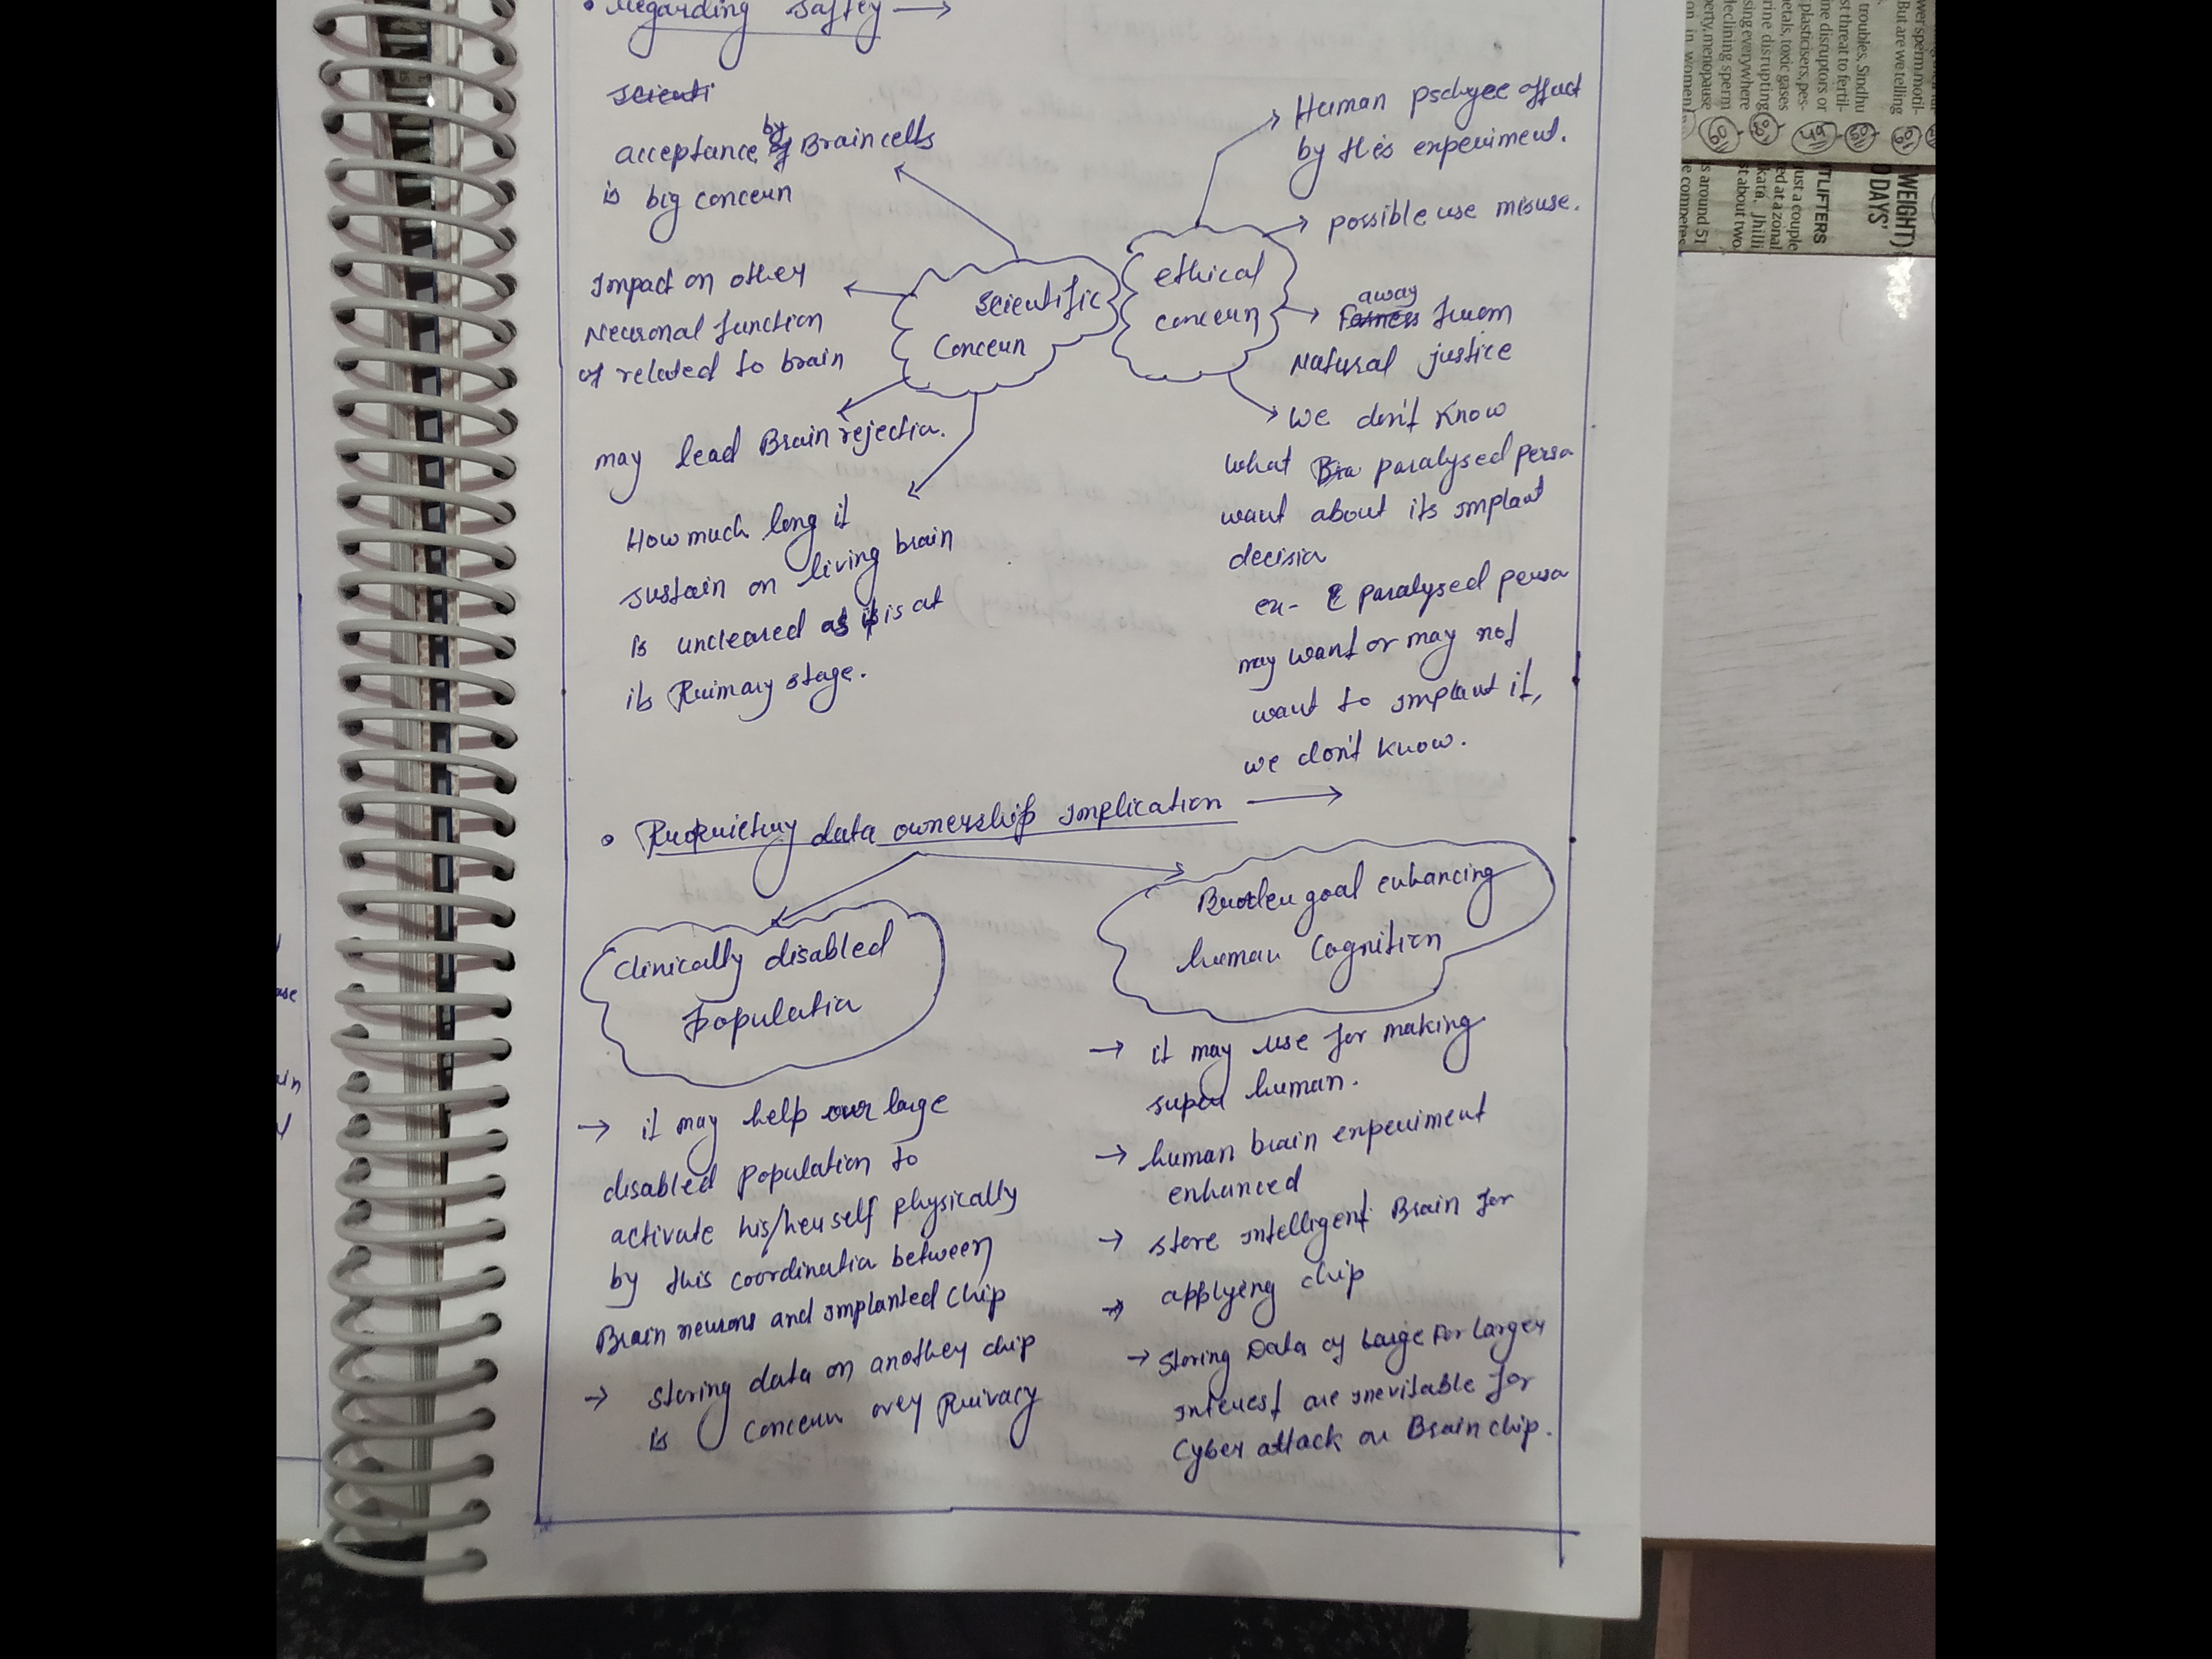 • Regarding saftey →
scienti
acceptance by Brain cells
is big concern
Impact on other
Neuronal function
of related to brain
may lead Brain rejectia.
How much long it
sustain on living brain
is uncleared as it is at
its Primary stage.
scientific
concern
ethical
concern
Human pschyee effect
by this experiment.
possible use misuse.
away
Farness from
Natural justice
We don't know
what Bra paralysed perso
want about its implant
decisia
ex- paralysed perso
may want or may not
want to implant it,
we don't know.
• Proprietry data ownership implication →
Clinically disabled
populatia
→ it may help our large
disabled population to
activate his/her self physically
by this coordinatia between
Brain neurons and implanted chip
→ storing data on another chip
is concern over Privacy
Broder goal enhancing
human Cognition
→ it may use for making
super human.
→ human brain experiment
enhanced
→ store intelligent Brain for
→ applying chip
→ storing Data of Large For Larger
interest are inevitable for
Cyber attack on Brain chip.
wer sperm motil-
But are we telling
troubles, Sindhu
st threat to fertil-
ine disruptors or
plasticisers, pes-
etals, toxic gases
rine disrupting
sing everywhere
declining sperm
erty, menopause
on in women
WEIGHT)
0 DAYS'
TLIFTERS
ust a couple
ed at a zonal
kata. Jhilli
st about two
s around 51
e competes